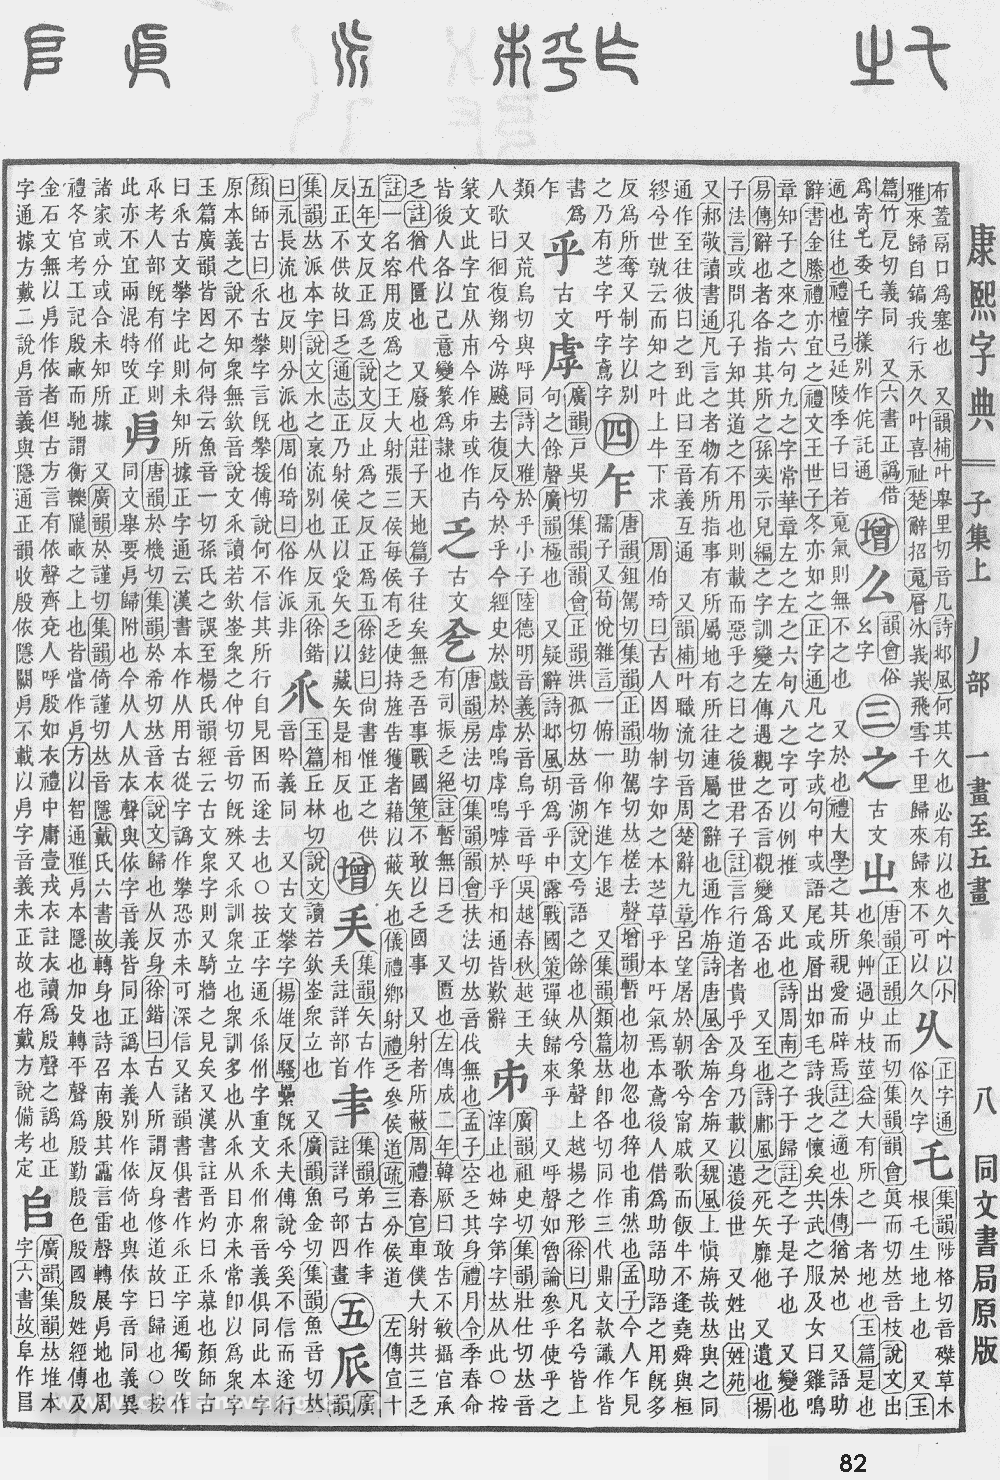 康熙字典 子集上 丿部 一畫至五畫 八 同文書局原版
布蓋鬲口爲塞也 又韻補叶舉里切音几詩邶風何其久也必有以也久叶以小
雅來歸自鎬我行永久叶喜祉楚辭招䰟層冰峩峩飛雪千里歸來歸來不可以久
乆
正字通
俗久字
乇
集韻陟格切音磔草木
根乇生地上也 又玉
篇竹尼切義同 又六書正譌借
爲寄乇委乇字㨾別作侂託通
增
么
韻會俗
幺字
三
之
古文
㞢
唐韻正韻止而切集韻韻會眞而切𠀤音枝說文出
也象艸過屮枝莖益大有所之一者地也玉篇是也
適也往也禮檀弓延陵季子曰若䰟氣則無不之也 又於也禮大學之其所親愛而辟焉註之適也朱傳猶於也 又語助
辭書金縢禮亦宜之禮文王世子冬亦如之正字通凡之字或句中或語尾或層出如毛詩我之懷矣共武之服及女曰雞鳴
章知子之來之六句九之字常華章左之左之六句八之字可以例推 又此也詩周南之子于歸註之子是子也 又變也
易傳辭也者各指其所之孫奕示兒編之字訓變左傳遇觀之否言觀變爲否也 又至也詩鄘風之死矢靡他 又遺也揚
子法言或問孔子知其道之不用也則載而惡乎之曰之後世君子註言行道者貴乎及身乃載以遺後世 又姓出姓苑
又郝敬讀書通凡言之者物有所指事有所屬地有所往連屬之辭也通作旃詩唐風舍旃舍旃又魏風上愼旃哉𠀤與之同
通作至往彼曰之到此曰至音義互通 又韻補叶職流切音周楚辭九章呂望屠於朝歌兮甯戚歌而飯牛不逢堯舜與桓
繆兮世孰云而知之叶上牛下求 周伯琦曰古人因物制字如之本芝草乎本吁氣焉本鳶後人借爲助語助語之用旣多
反爲所奪又制字以別
之乃有芝字吁字鳶字
四
乍
唐韻鉏駕切集韻正韻助駕切𠀤槎去聲增韻暫也初也忽也猝也甫然也孟子今人乍見
孺子又荀悅雜言一俯一仰乍進乍退 又集韻類篇𠀤卽各切同作三代鼎文款識作皆
書爲
乍
乎
古文
虖
廣韻戸吳切集韻韻會正韻洪孤切𠀤音湖說文兮語之餘也从兮象聲上越揚之形徐曰凡名兮皆上
句之餘聲廣韻極也 又疑辭詩邶風胡爲乎中露戰國策彈鋏歸來乎 又呼聲如曾論參乎使乎之
類 又荒烏切與呼同詩大雅於乎小子陸德明音義於音烏乎音呼吳越春秋越王夫
人歌曰徊復翔兮游颺去復反兮於乎今經史於戲於虖嗚虖嗚嘑於乎相通皆歎辭
𠂔
廣韻祖史切集韻壯仕切𠀤音
滓止也姊字第字𠀤从此○按
篆文此字宜从巿今作𠂔或作𠂕
皆後人各以己意變篆爲隸也
乏
古文
𠓟
唐韻房法切集韻韻會扶法切𠀤音伐無也孟子空乏其身禮月令季春命
有司振乏絕註暫無曰乏 又匱也左傳成二年韓厥曰敢告不敏攝官承
乏註猶代匱也 又廢也莊子天地篇子往矣無乏吾事戰國策不敢以乏國事 又射者所蔽周禮春官車僕大射共三乏
註一名容用皮爲之王大射張三侯每侯有乏使持旌告獲者藉以蔽矢也儀禮鄉射禮乏參侯道䟽三分侯道 左傳宣十
五年文反正爲乏說文反止爲之反正爲丏徐鉉曰尙書惟正之供
反正不供故曰乏通志正乃射侯正以受矢乏以藏矢是相反也
增
集韻矢古作
註詳部首
集韻弟古作
註詳弓部四畫
五
𠂢
廣韻
集韻𠀤派本字說文水之衺流別也从反永徐鍇
曰永長流也反則分派也周伯琦曰俗作派非
乑
玉篇丘林切說文讀若欽崟衆立也 又廣韻魚金切集韻魚音切𠀤
音吟義同 又古文攀字揚雄反騷纍旣乑夫傳說兮奚不信而遂行
顏師古曰乑古攀字言旣攀援傅說何不信其所行自見困而遂去也○按正字通乑係㐺字重文乑㐺衆音義俱同此本字
原本義之說不知衆無欽音說文乑讀若欽崟衆之仲切音切旣殊又乑訓衆立也衆訓多也从乑从目亦未常卽以爲衆字
玉篇廣韻皆因之何得云魚音一切孫氏之誤至楊氏韻經云古文衆字則又騎牆之見矣又漢書註晋灼曰乑慕也顏師古
曰乑古文攀字此則未知所據正字通云漢書本作从用古從字譌作攀恐亦未可深信又諸韻書俱書作乑正字通獨攺作
㐺考人部旣有㐺字則
此亦不宜兩混特攺正
㐆
唐韻於機切集韻於希切𠀤音衣說文歸也从反身徐鍇曰古人所謂反身修道故曰歸也○按
同文舉要㐆歸附也今从人从衣聲與依字音義皆同正譌本義別作依倚也與依字音同義異
諸家或分或合未知所據 又廣韻於謹切集韻倚謹切𠀤音隱戴氏六書故轉身也詩召南殷其靁言雷聲轉展㐆地也周
禮冬官考工記殷畝而馳謂衡轢隴畝之上也皆當作㐆方以智通雅㐆本隱也加殳轉平聲爲殷勤殷色殷國殷姓經傳及
金石文無以㐆作依者但古方言有依聲齊兗人呼殷如衣禮中庸壹戎衣註衣讀爲殷聲之譌也正
字通據方戴二說㐆音義與隱通正韻收殷依隱關㐆不載以㐆字音義未正故也存戴方說備考定
𠂤
廣韻集韻𠀤堆本
字六書故阜作𠂤
82